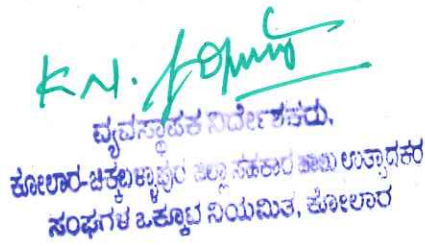 K.N.
ವ್ಯವಸ್ಥಾಪಕ ನಿರ್ದೇಶಕರು,
ಕೋಲಾರ-ಚಿಕ್ಕಬಳ್ಳಾಪುರ ಜಿಲ್ಲಾ ಸಹಕಾರ ಹಾಲು ಉತ್ಪಾದಕರ
ಸಂಘಗಳ ಒಕ್ಕೂಟ ನಿಯಮಿತ, ಕೋಲಾರ